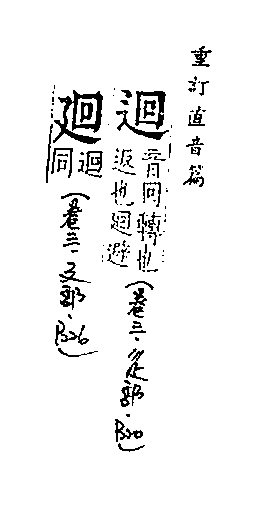 重訂直音篇
迴 音同轉也
返也迴避
(卷三・辵部・P20)
廻 迴
同
(卷三・廴部・P26)